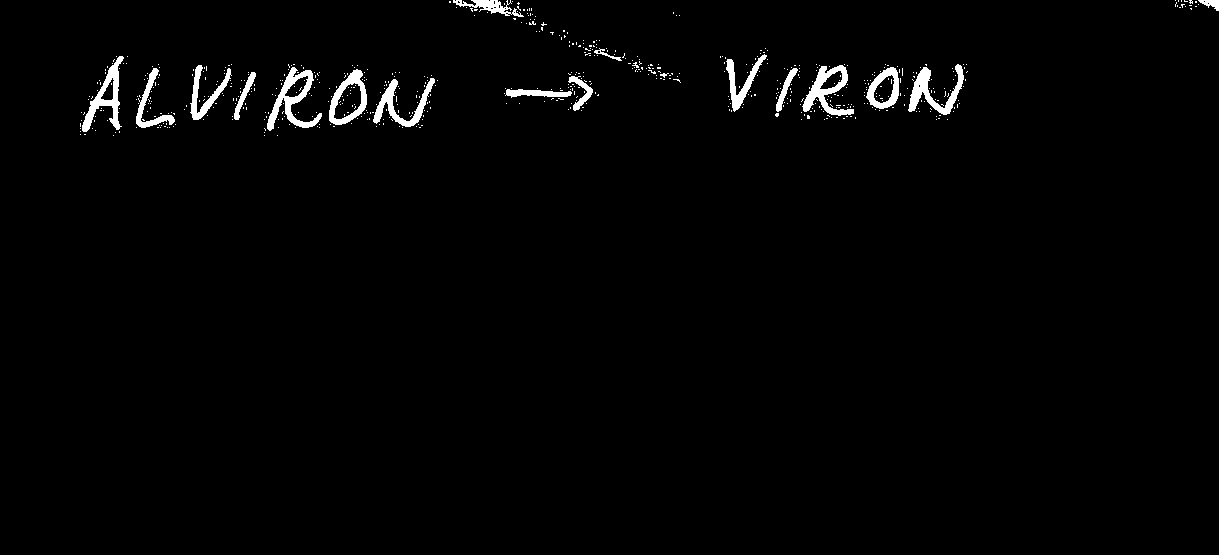 ALVIRON → VIRON